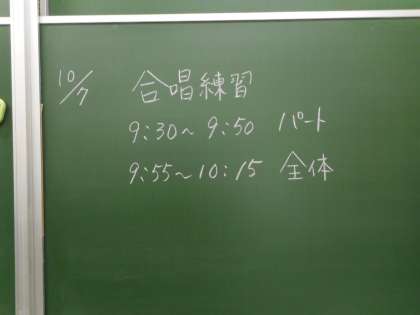 10/7 合唱練習
9:30〜9:50 パート
9:55〜10:15 全体